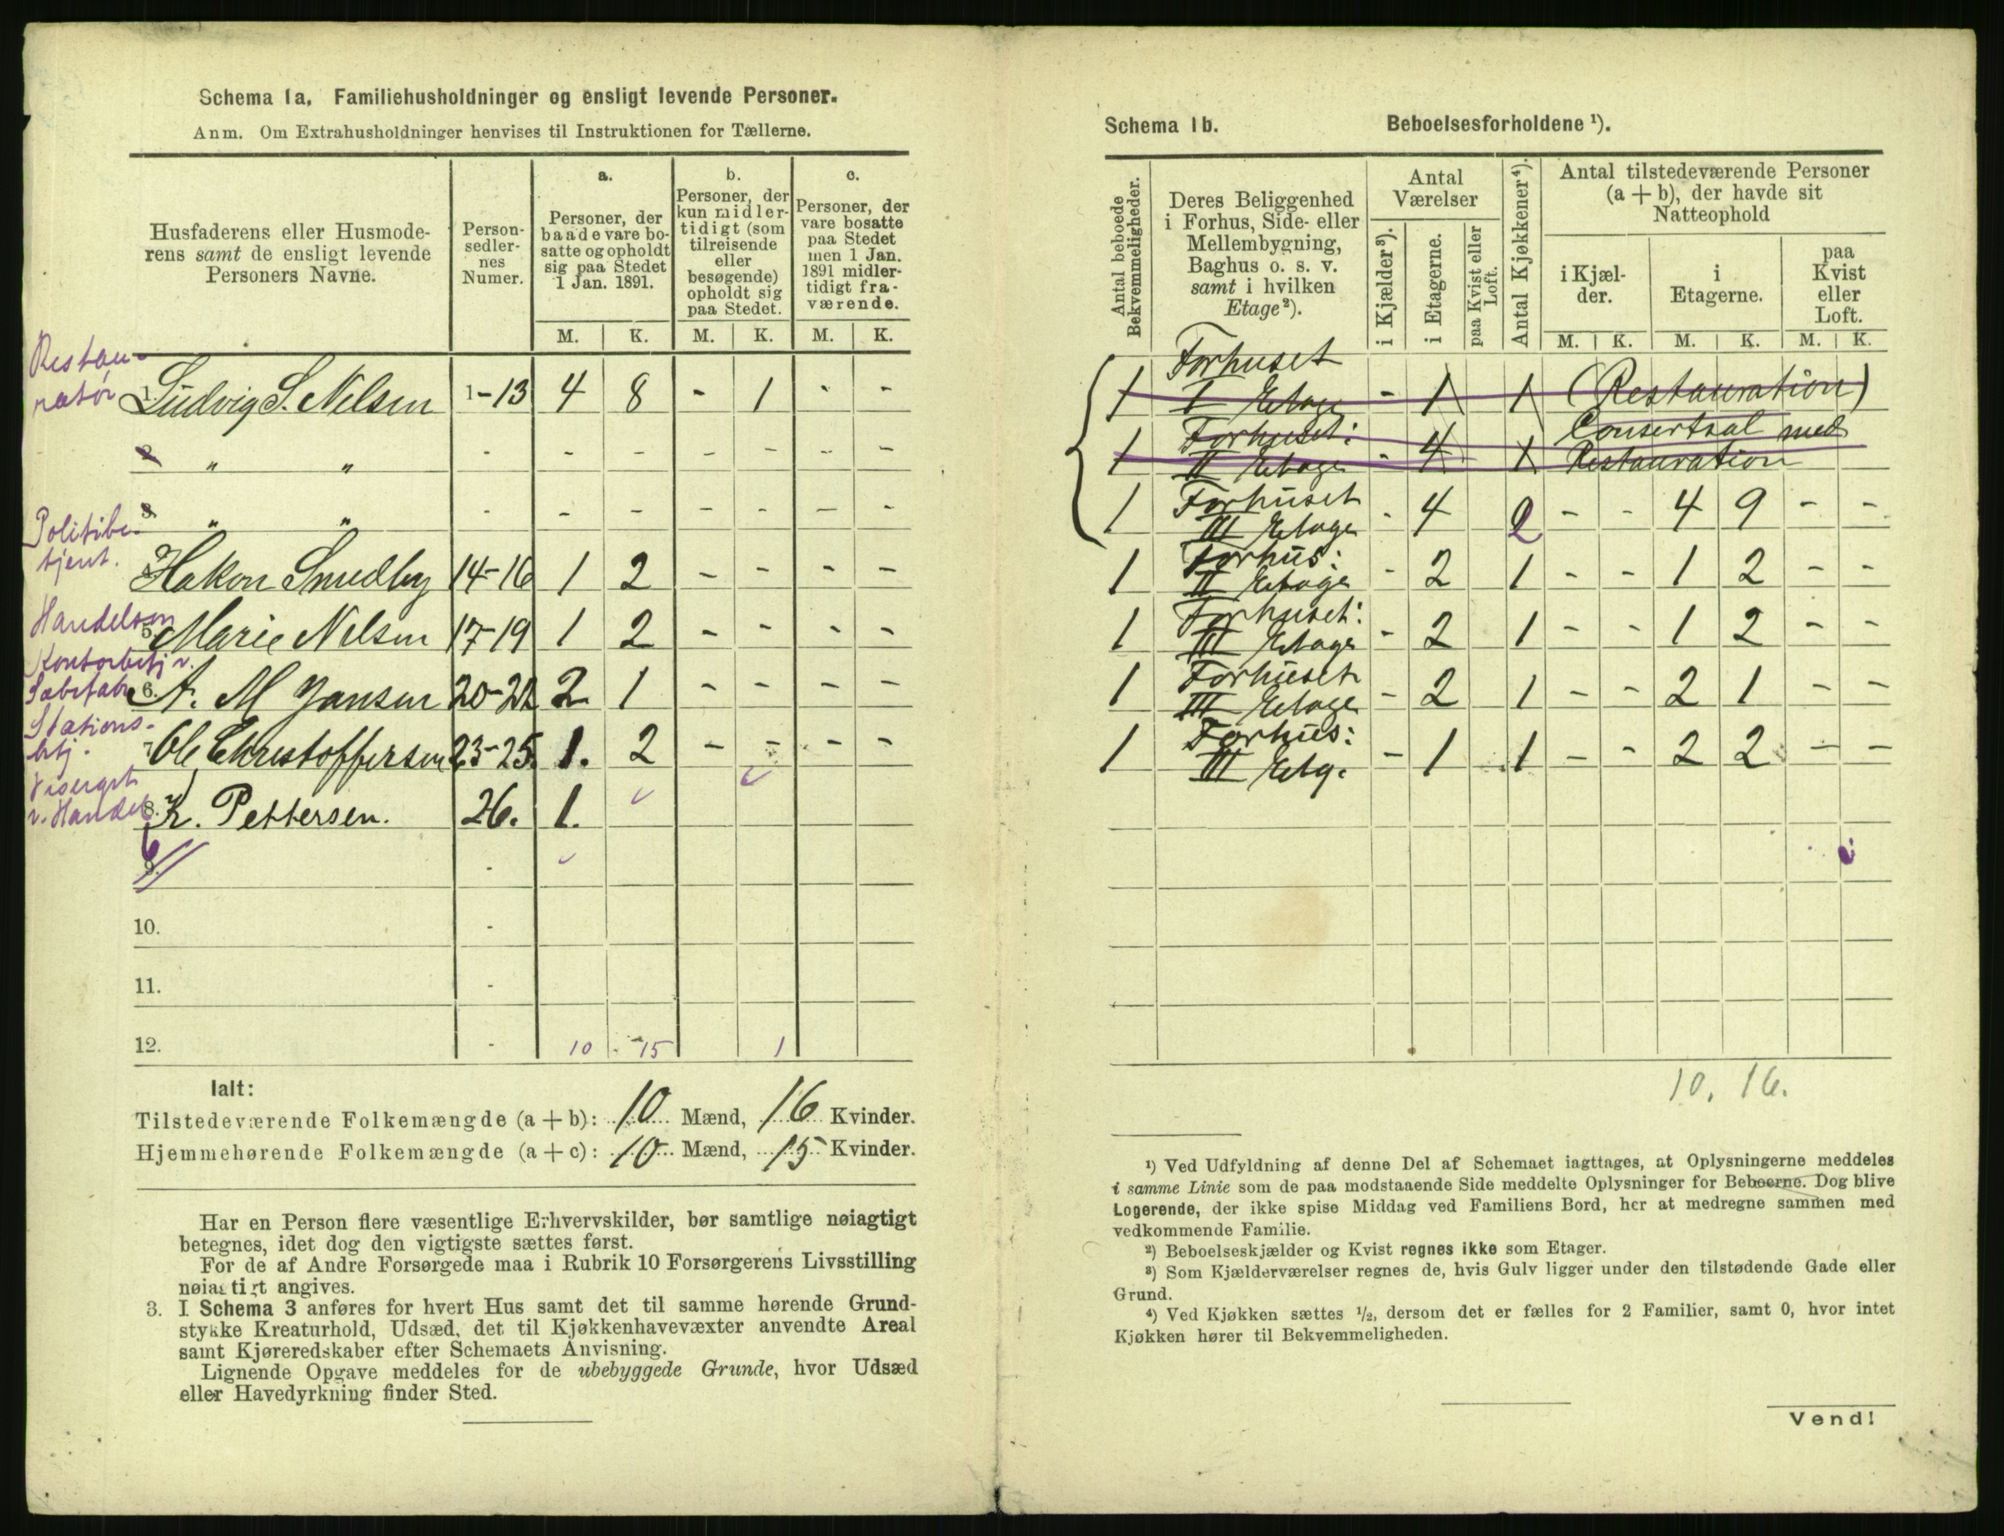 Schema 1a. Familiehusholdninger og ensligt levende Personer.
Anm. Om Extrahusholdninger henvises til Instruktionen for Tællerne.
Husfaderens eller Husmode-
rens samt de ensligt levende
Personers Navne.
Person-
sedler-
nes
Numer.
a.
Personer, der
baade vare bo-
satte og opholdt
sig paa Stedet
1 Jan. 1891.
b.
Personer, der
kun midler-
tidigt (som
tilreisende
eller
besøgende)
opholdt sig
paa Stedet.
c.
Personer, der
vare bosatte
paa Stedet
men 1 Jan.
1891 midler-
tidigt fra-
værende.
M. K. M. K. M. K.
Restau-
ratør
1. Ludvig S. Nilsen 1-13 4 8 - 1 - -
2. " " - - - - - - -
3. " " - - - - - - -
Politibe-
tjent.
4. Hakon Smedby 14-16 1 2 - - - -
Handelson
5. Marie Nilsen 17-19 1 2 - - - -
Kontorbetj v.
Sæbefabr
6. A. M Jansen 20-22 2 1 - - - -
Stations-
btj.
7. Ole Christoffersen 23-25. 1. 2 - - - -
Visergut
v. Handel
8. K. Pettersen. 26. 1.
6
9. -
10. -
11. -
12. - 10 15 1
Ialt:
Tilstedeværende Folkemængde (a + b): 10 Mænd, 16 Kvinder.
Hjemmehørende Folkemængde (a + c): 10 Mænd, 15 Kvinder.
Har en Person flere væsentlige Erhvervskilder, bør samtlige nøiagtigt
betegnes, idet dog den vigtigste sættes først.
For de af Andre Forsørgede maa i Rubrik 10 Forsørgerens Livsstilling
nøiagtigt angives.
3. I Schema 3 anføres for hvert Hus samt det til samme hørende Grund-
stykke Kreaturhold, Udsæd, det til Kjøkkenhavevæxter anvendte Areal
samt Kjøreredskaber efter Schemaets Anvisning.
Lignende Opgave meddeles for de ubebyggede Grunde, hvor Udsæd
eller Havedyrkning finder Sted.
Schema 1b. Beboelsesforholdene ¹).
Antal beboede
Bekvemmeligheder.
Deres Beliggenhed
i Forhus, Side- eller
Mellembygning,
Baghus o. s. v.
samt i hvilken
Etage²).
Antal
Værelser
i Kjælder³).
i Etagerne.
paa Kvist eller
Loft.
Antal Kjøkkener⁴).
Antal tilstedeværende Personer
(a + b), der havde sit
Natteophold
i Kjæl-
der.
i
Etagerne.
paa
Kvist
eller
Loft.
M. K. M. K. M. K.
Forhuset
1 I Etage - 1 1 (Restauration)
Forhuset: Consertsal med
1 II Etage - 4 1 Restauration
Forhuset
1 III Etage - 4 2 - - 4 9 - -
Forhus:
1 II Etage - 2 1 - - 1 2 - -
Forhuset:
1 III Etage - 2 1 - - 1 2 - -
Forhuset
1 III Etage - 2 1 - - 2 1 - -
Forhus:
1 III Etg. - 1 1 - - 2 2 - -
10. 16.
¹) Ved Udfyldning af denne Del af Schemaet iagttages, at Oplysningerne meddeles
i samme Linie som de paa modstaaende Side meddelte Oplysninger for Beboerne. Dog blive
Logerende, der ikke spise Middag ved Familiens Bord, her at medregne sammen med
vedkommende Familie.
²) Beboelseskjælder og Kvist regnes ikke som Etager.
³) Som Kjælderværelser regnes de, hvis Gulv ligger under den tilstødende Gade eller
Grund.
⁴) Ved Kjøkken sættes ½, dersom det er fælles for 2 Familier, samt 0, hvor intet
Kjøkken hører til Bekvemmeligheden.
Vend!